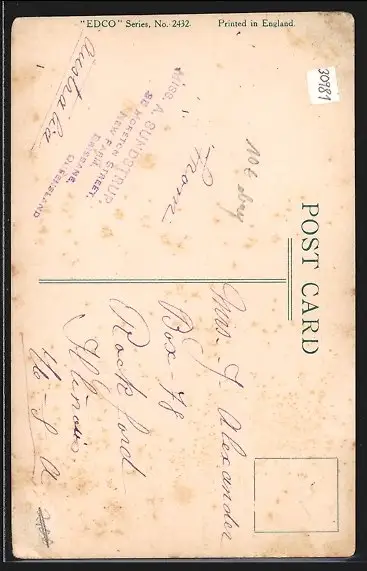 "EDCO" Series, No. 2432. Printed in England.
POST CARD
30981
Australia
MISS. A. SUNDSTRUP,
MORETON STREET,
NEW FARM
BRISBANE,
QUEENSLAND
From
Mrs. J. Alexander
Box-78
Rockford
Illinois
U-S-A